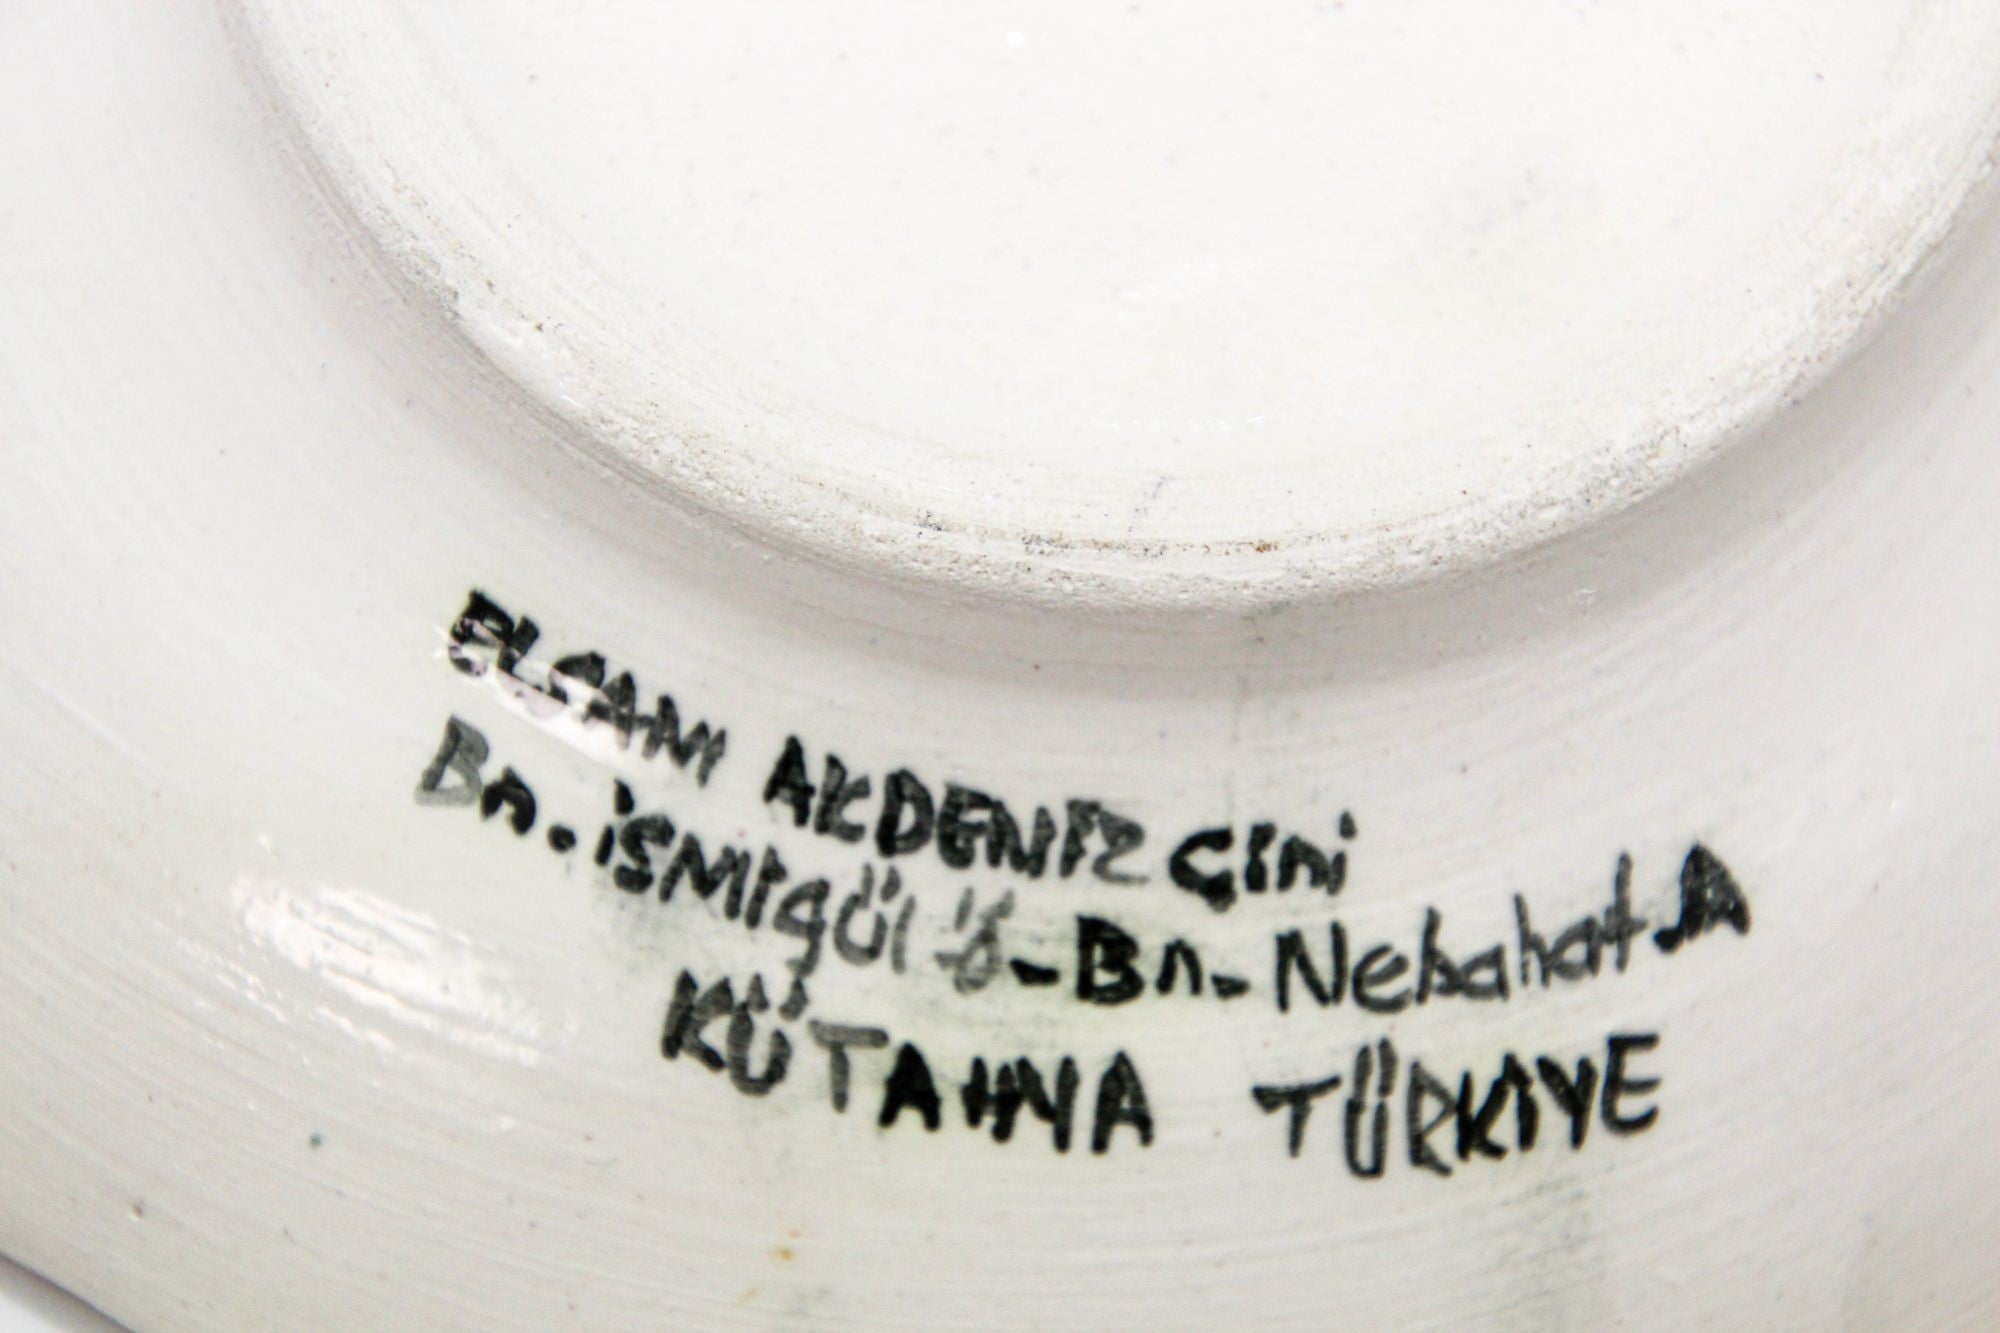 ELSANI AKDENİZ ÇİNİ
Bn. İSMİGÜL -Bn- Nebahat A
KÜTAHYA TÜRKİYE